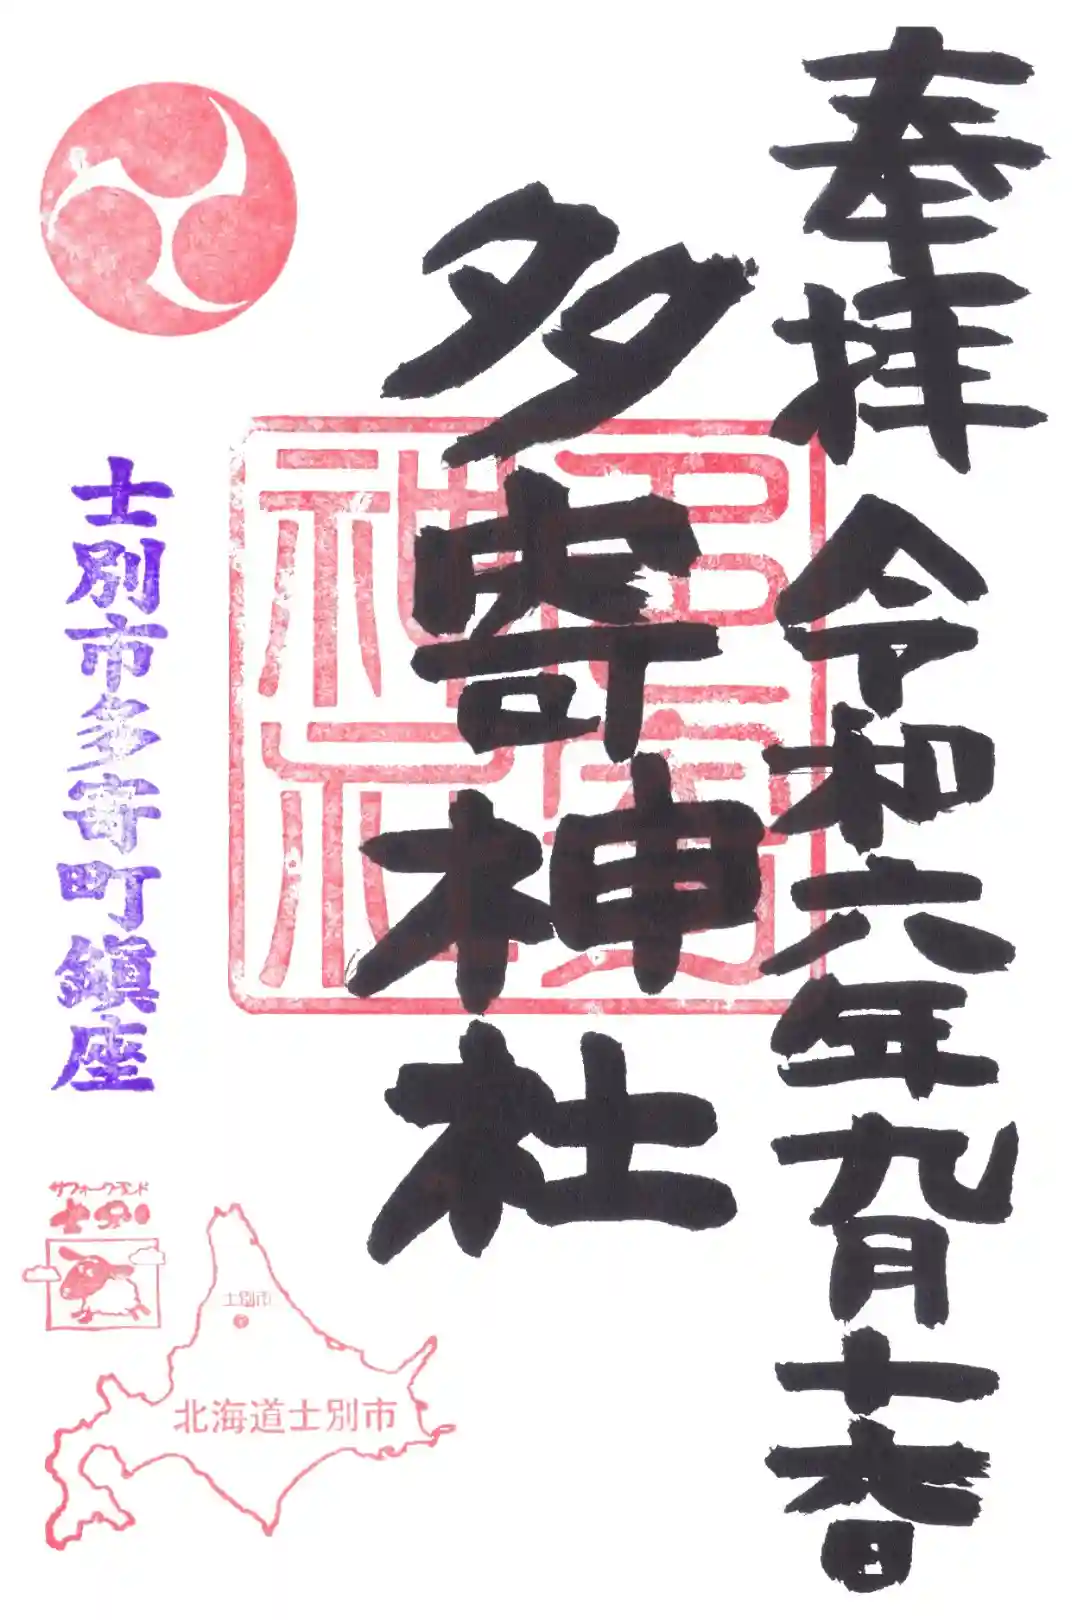 奉拝 令和六年九月十日
多寄神社
多寄
神社
士別市多寄町鎮座
サフォークランド
士別
士別市
北海道士別市